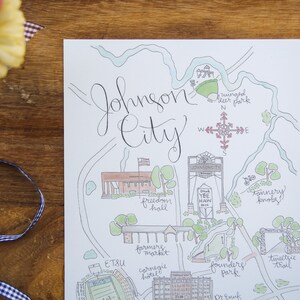 Johnson
City
winged
deer park
N
W
E
S
freedom
hall
tannery
knobs
farmers
market
founders
park
tweetsie
trail
ETSU
carnegie
hotel